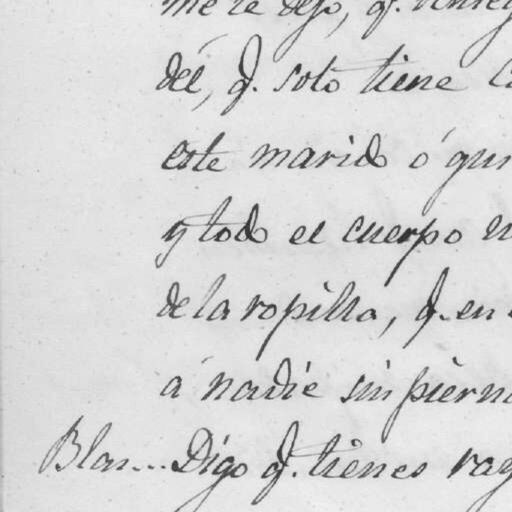 me le dejó, q.
dél, q. solo tiene
este marido ó
y todo el cuerpo
de la ropilla, q. en
á nadie sin piern
Blas... Digo q. tienes raz